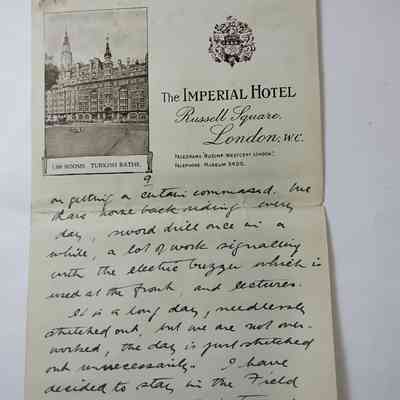 The IMPERIAL HOTEL
Russell Square,
London, W.C.
TELEGRAMS "RUSIMP. WESTCENT LONDON."
TELEPHONE. MUSEUM 3400.
ROOMS. TURKISH BATHS.
9
on getting a certain command. We
have horse back riding every
day, sword drill once in a
while, a lot of work signalling
with the electric buzzer which is
used at the front, and lectures.
It is a long day, needlessly
stretched out, but we are not over-
worked, the day is just stretched
out unnecessarily. I have
decided to stay in the Field